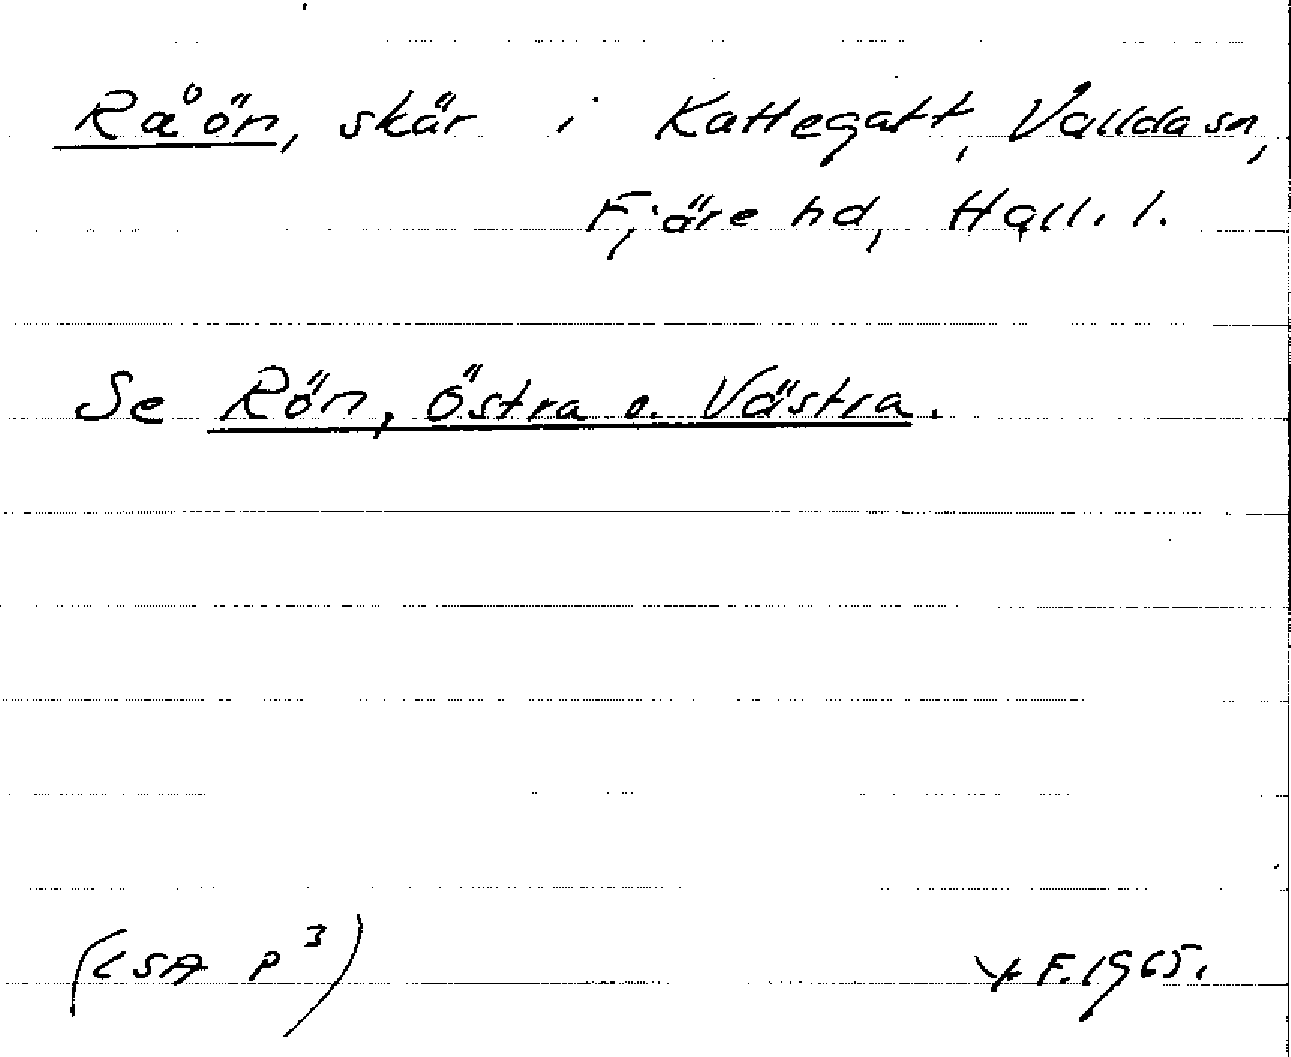 Råön, skär i Kattegatt, Vallda sn,
Fjäre hd, Hall. l.
Se Rön, Östra o. Västra.
(LSA P³) F. 1965.